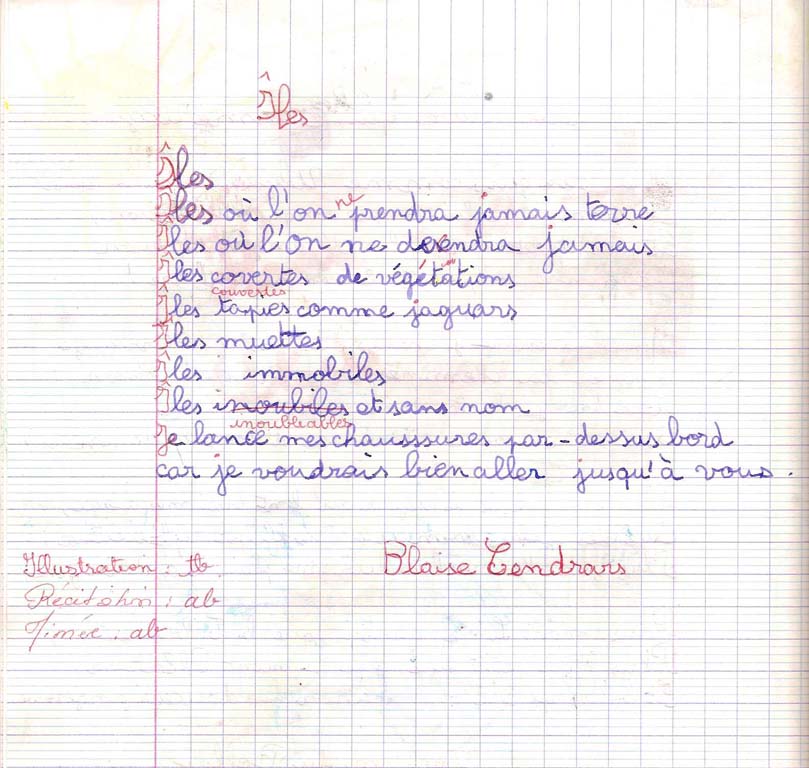 Îles
Îles
Îles où l'on ne prendra jamais terre
Îles où l'on ne descendra jamais
Îles covertes de végétations
couvertes
Îles tapies comme jaguars
Îles muettes
Îles immobiles
Îles inoubiles et sans nom
inoubliables
Je lance mes chausssures par-dessus bord
car je voudrais bien aller jusqu'à vous.
Blaise Cendrars
Illustration : tb
Récitation : ab
Mimée : ab